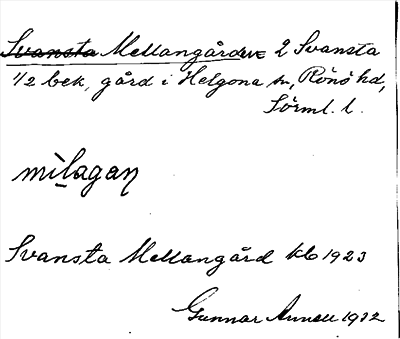 Svansta Mellangården 2 Svansta
1/2 bek, gård i Helgona sn, Rönö hd,
Sörml. l.
mìlagan
Svansta Mellangård kb 1923
Gunnar Annell 1932